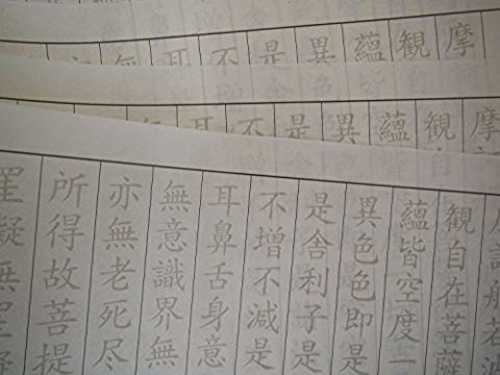 摩
観
蘊
異
是
不
耳
無
摩
観自
蘊
異
是
不
耳
無
訶般若波
観自在菩薩
蘊皆空度一
異色色即是
是舎利子是
不増不減是
耳鼻舌身意
無意識界無
亦無老死尽
所得故菩提
罣礙無罣礙